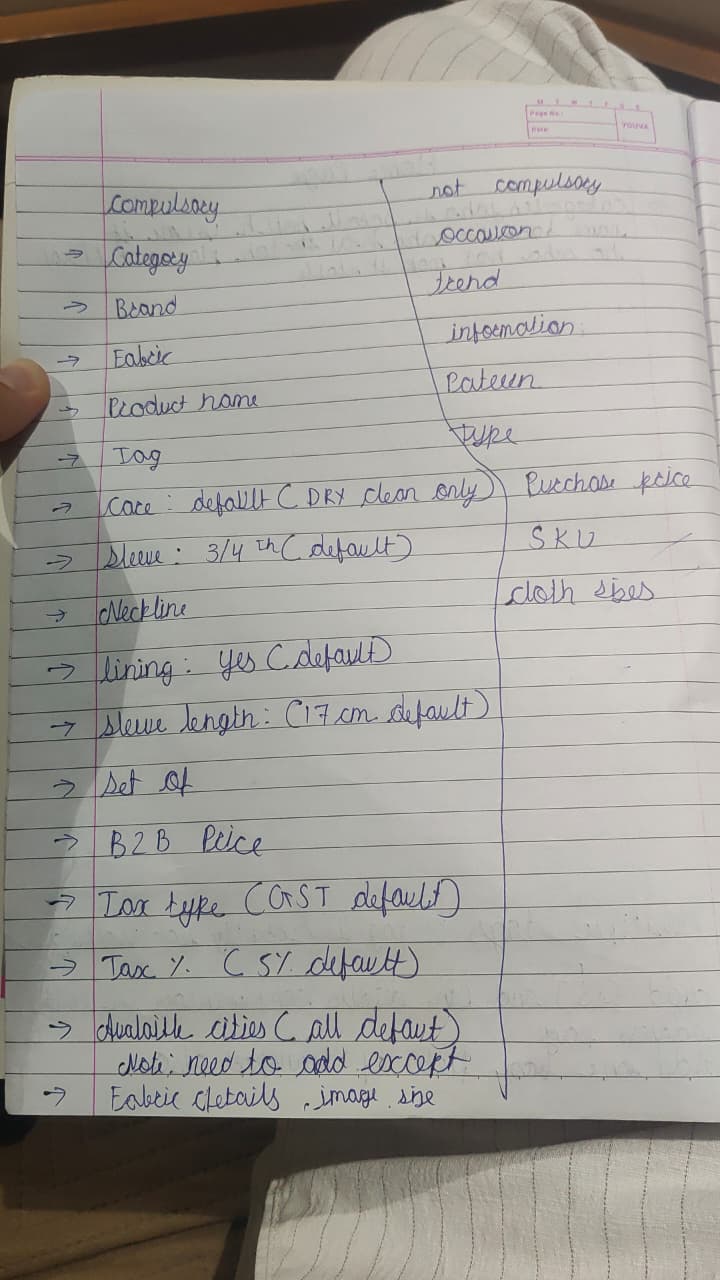 Page No.:
Date:
YOUVA
Compulsory
not compulsory
→ Category
occasion
→ Brand
trend
→ Fabric
information
→ Product name
Pateern
→ Tag
type
→ Care : defallt ( DRY clean only )
Purchase price
→ Sleeve : 3/4 th ( default )
SKU
→ Neckline
cloth sizes
→ lining : yes ( default )
→ Sleeve length : ( 17 cm default )
→ Set of
→ B2B Price
→ Tax type ( GST default )
→ Tax % ( 5% default )
→ Available cities ( all defaut )
Note : need to add except
→ Fabric details , image size